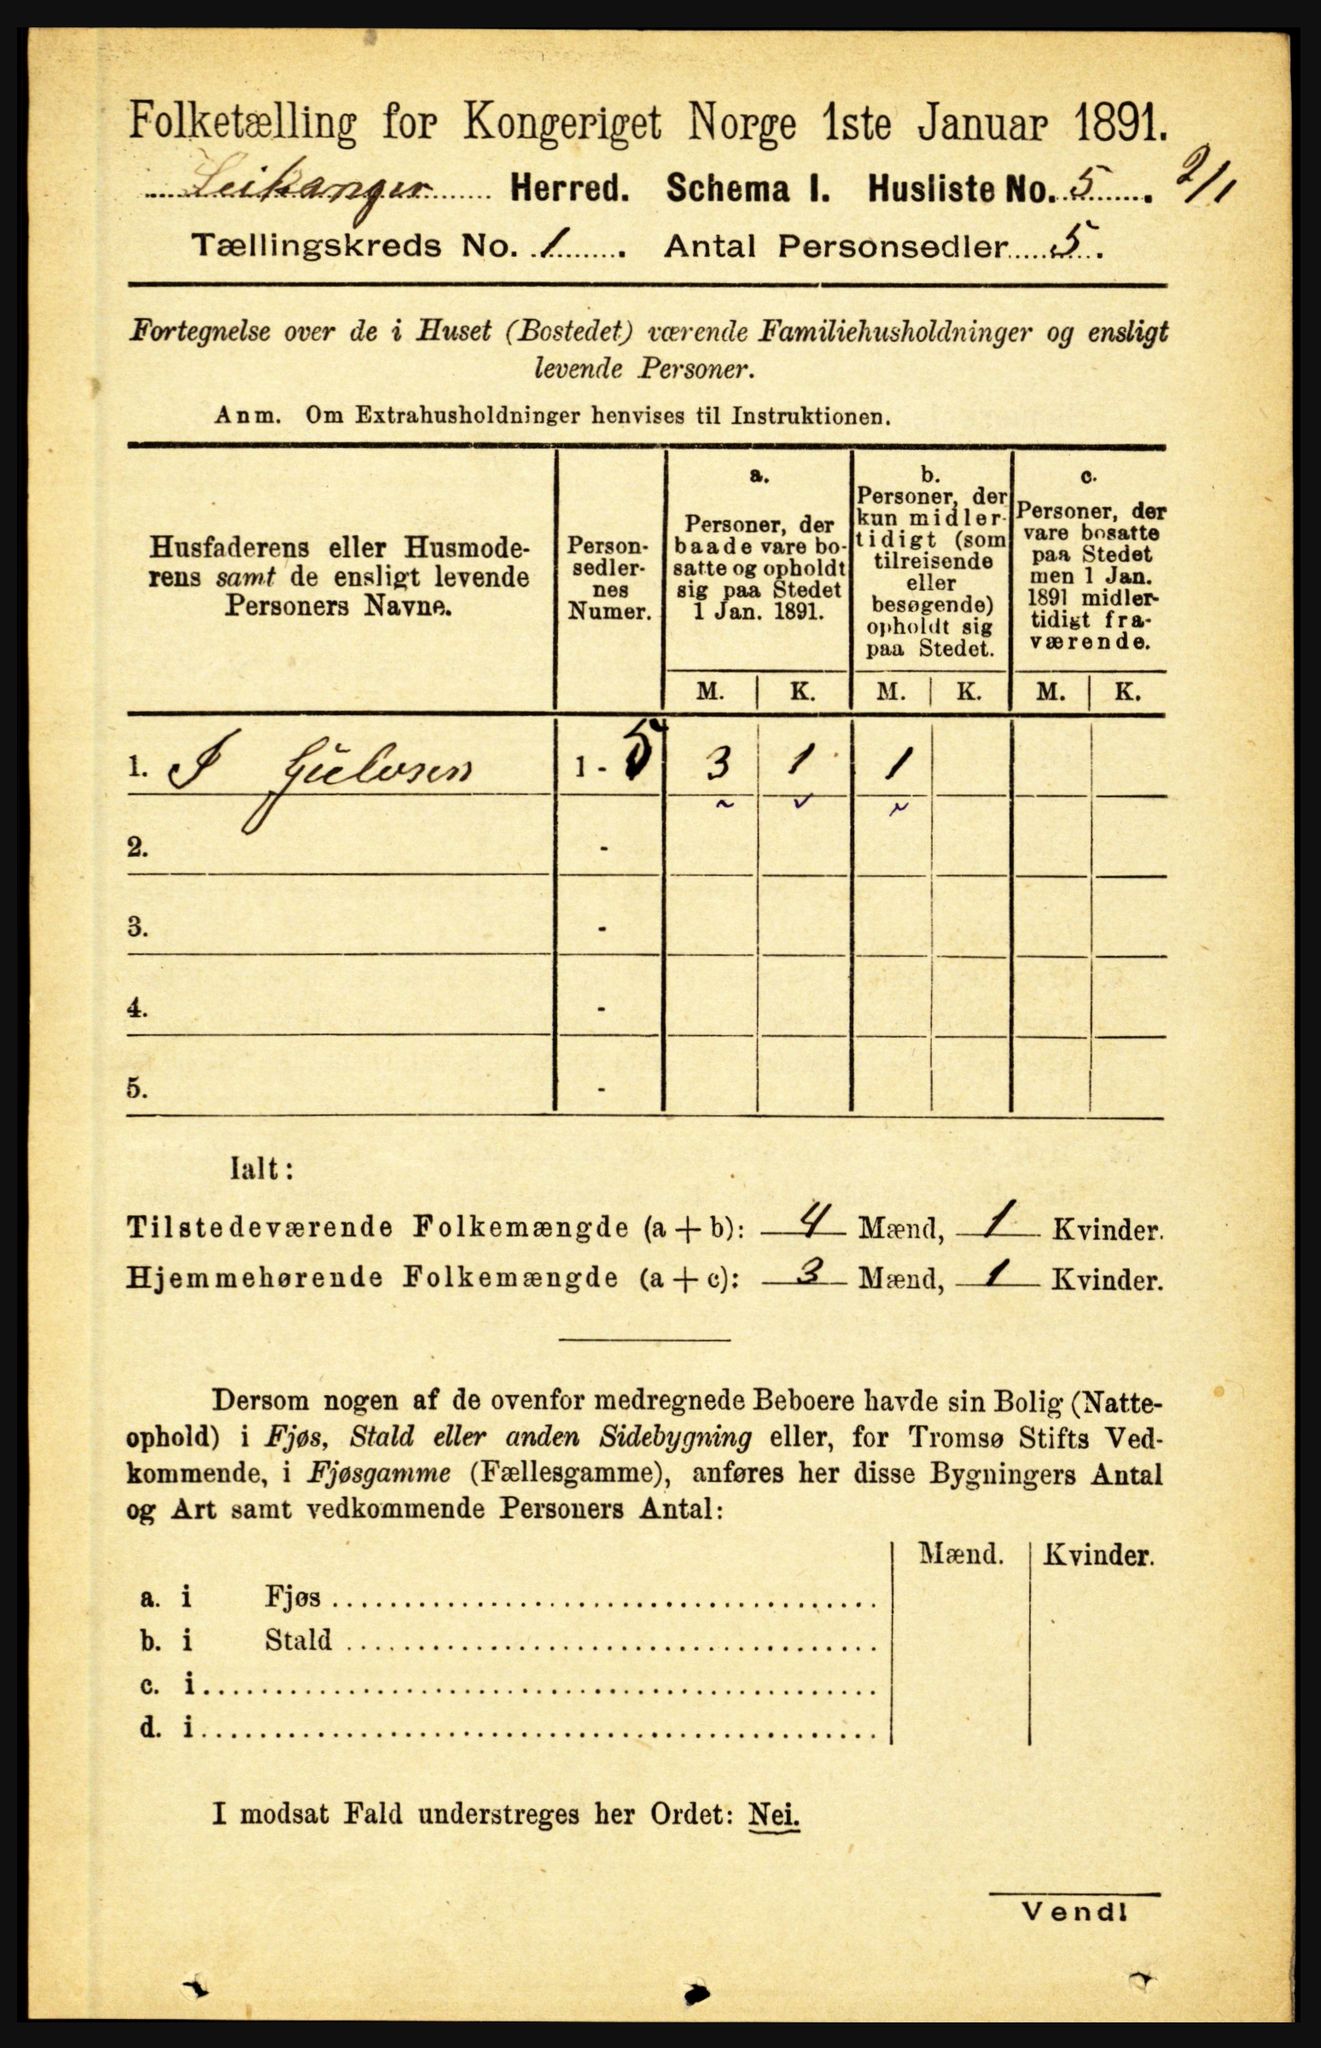 Folketælling for Kongeriget Norge 1ste Januar 1891.
Leikanger Herred. Schema I. Husliste No. 5. 2/1
Tællingskreds No. 1. Antal Personsedler 5.
Fortegnelse over de i Huset (Bostedet) værende Familiehusholdninger og ensligt
levende Personer.
Anm. Om Extrahusholdninger henvises til Instruktionen.
Husfaderens eller Husmode-
rens samt de ensligt levende
Personers Navne.
Person-
sedler-
nes
Numer.
a.
Personer, der
baade vare bo-
satte og opholdt
sig paa Stedet
1 Jan. 1891.
b.
Personer, der
kun midler-
tidigt (som
tilreisende
eller
besøgende)
opholdt sig
paa Stedet.
c.
Personer, der
vare bosatte
paa Stedet
men 1 Jan.
1891 midler-
tidigt fra-
værende.
M. K. M. K. M. K.
1. J 1 - 5 3 1 1
2. -
3. -
4. -
5. -
Ialt:
Tilstedeværende Folkemængde (a + b): 4 Mænd, 1 Kvinder.
Hjemmehørende Folkemængde (a + c): 3 Mænd, 1 Kvinder.
Dersom nogen af de ovenfor medregnede Beboere havde sin Bolig (Natte-
ophold) i Fjøs, Stald eller anden Sidebygning eller, for Tromsø Stifts Ved-
kommende, i Fjøsgamme (Fællesgamme), anføres her disse Bygningers Antal
og Art samt vedkommende Personers Antal:
Mænd. Kvinder.
a. i Fjøs
b. i Stald
c. i
d. i
I modsat Fald understreges her Ordet: Nei.
Vend!